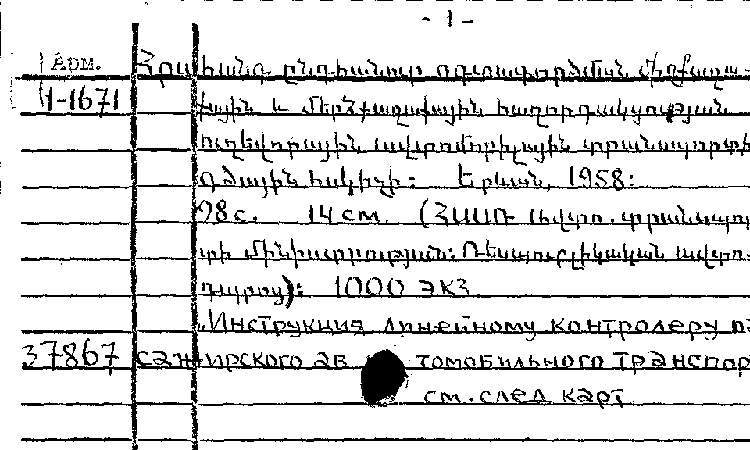 - 1 -
Арм. Հրահանգ ընդհանուր օգտագործման միջքաղա-
1-1671 քային և մերձքաղաքային հաղորդակցության
ուղևորային ավտոմոբիլային տրանսպորտի
գծային հսկիչի: Երևան, 1958:
98 с. 14 см. (ՀՍՍՌ Ավտո. տրանսպոր
տի մինիստրություն: Ռեսպուբլիկական ավտո-
դպրոց): 1000 экз
„Инструкция линейному контролеру па
37867 сажирского ав томобильного транспор
см. след карт